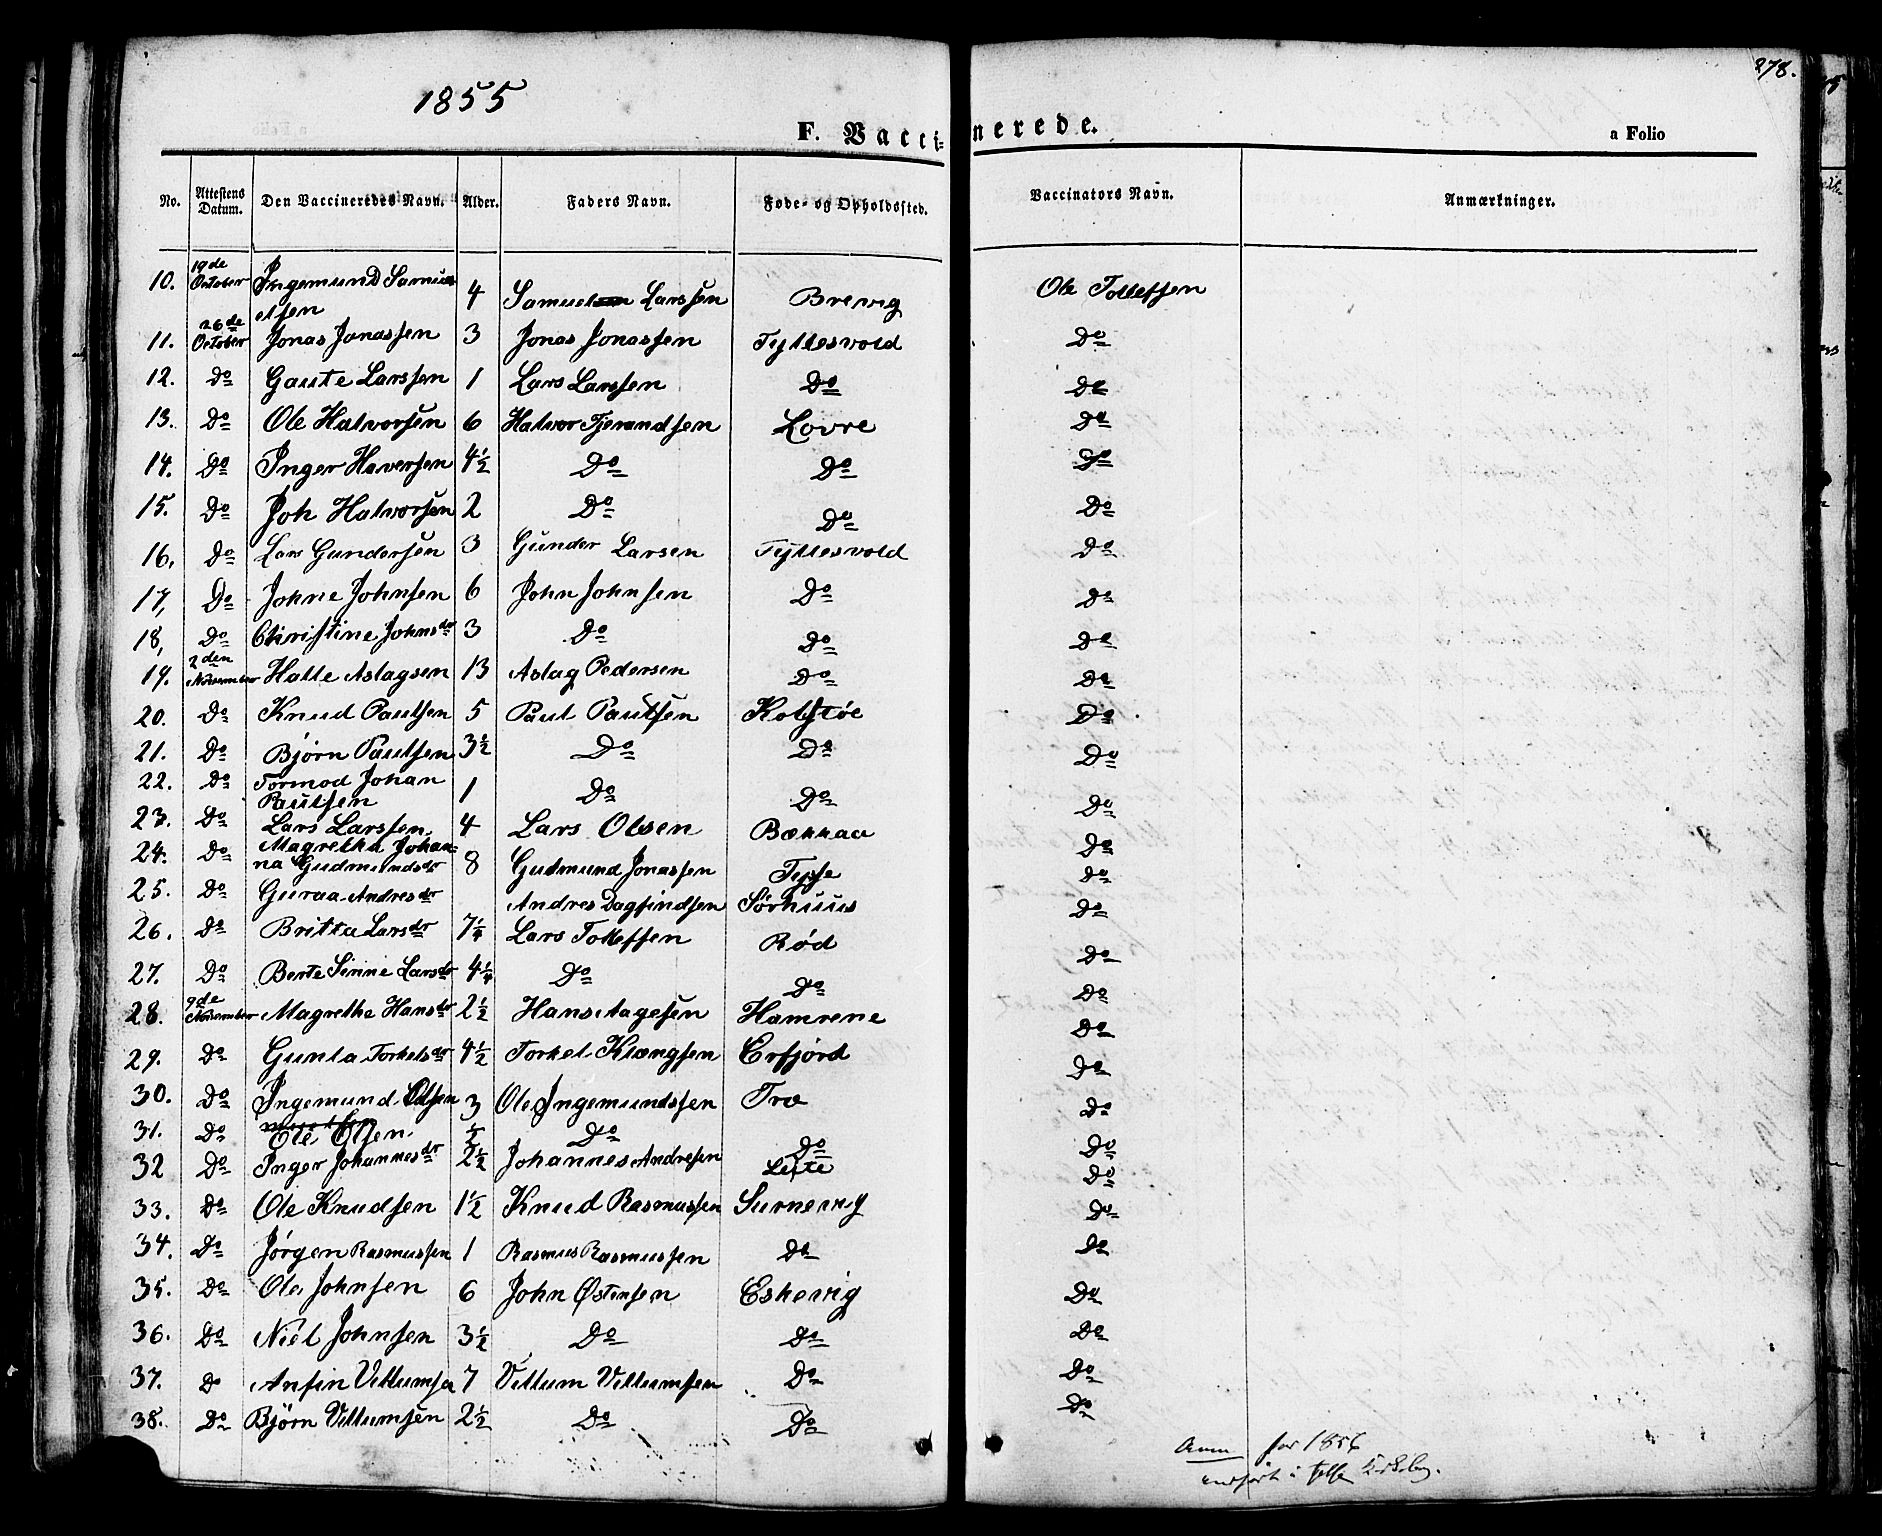 1855
278.
F. Vaccinerede.
a Folio
No. Attestens Datum. Den Vaccineredes Navn. Alder. Faders Navn. Føde- og Opholdssted. Vaccinators Navn. Anmærkninger.
10. 19de October Ingemund Samuelsen 4 Samuel Larssen Brevig Ole Tollefsen
11. 26de October Jonas Jonassen 3 Jonas Jonassen Tyttesvold Do
12. Do Gaute Larssen 1 Lars Larssen Do Do
13. Do Ole Halvorsen 6 Halvor Tjerandsen Lovre Do
14. Do Inger Haversen 4½ Do Do Do
15. Do Joh Halvorsen 2 Do Do Do
16. Do Lars Gundersen 3 Gunder Larsen Tyttesvold Do
17, Do Johne Johnsen 6 John Johnsen Do Do
18, Do Christine Johnsdr 3 Do Do Do
19. 2den November Halle Aslagsen 13 Aslag Pedersen Do Do
20. Do Knud Paulsen 5 Paul Paulsen Kolstøe Do
21. Do Bjørn Paulsen 3½ Do Do Do
22. Do Tormod Johan Paulsen 1 Do Do Do
23. Do Lars Larssen 4 Lars Olsen Bækkaa Do
24. Do Magretha Johanna Gudmundsdr 8 Gudmund Jonassen Do
25. Do Guraa Andresdr Andres Dagfindsen Sørhuus Do
26. Do Britta Larsdr 7¼ Lars Tollefsen Rød Do
27. Do Berte Sinne Larsdr 4¼ Do Do Do
28. 9de November Magrethe Hansdr 2½ Hans Aagesen Hamrene Do
29. Do Gunla Torkelsdr 4½ Torkel Klængsen Erfjord Do
30. Do Ingemund Olsen 3 Ole Ingemundssen Tro Do
31. Do Ole Olsen ½ Do Do Do
32 Do Inger Johannesdr 2½ Johannes Andresen Leite Do
33. Do Ole Knudsen 1½ Knud Rasmussen Surnevig Do
34. Do Jørgen Rasmussen 1 Rasmus Rasmussen Do Do
35. Do Ole Johnsen 6 John Østensen Eskevig Do
36. Do Niel Johnsen 3½ Do Do Do
37. Do Anfin Vellumsen 7 Vellum Vellumsen Do Do
38. Do Bjørn Vellumsen 2½ Do Do Do
Anm for 1856
indført i